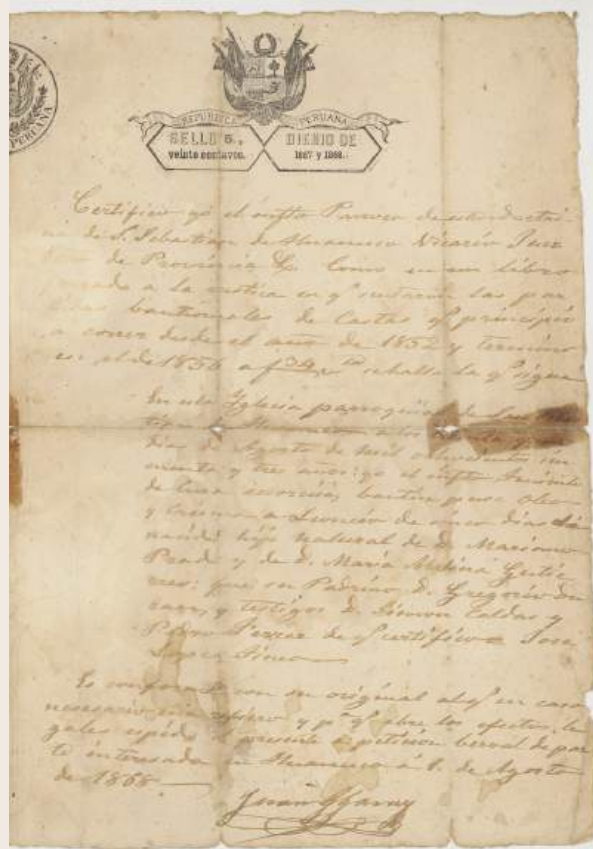 PERUANA
REPUBLICA PERUANA
SELLO 6., BIENIO DE
veinte centavos. 1867 y 1868.
Certifico yo el infto Parroco de esta doctri-
na de S. Sebastian de Huanuco Vicario Juez
de Provincia &. Como en un libro
a la rustica en q.e
bautismales de Castas q.e principió
a correr desde el año de 1852 y terminó
en el de 1856 a f se halla la q.e sigue
En esta Iglesia parroquial de
de Huanuco a los
dias de Agosto de mil ochocientos cin
cuenta y tres años: yo el infto Teniente
de Cura bautisé puse oleo
y crisma a Leoncio de cinco dias de
nacido hijo natural de D. Mariano
Prado y de D. María Gutie
rres: fue su Padrino D. Gregorio Du
ran, y testigos D. Simon Caldas y
Pedro de q.e certifico José
Es conforme con su original al q.e en caso
necesario me refiero y p.a q.e obre los efectos le
gales espido el presente a peticion berval de par
te interesada en Huanuco á 1. de Agosto
de 1868.
Juan